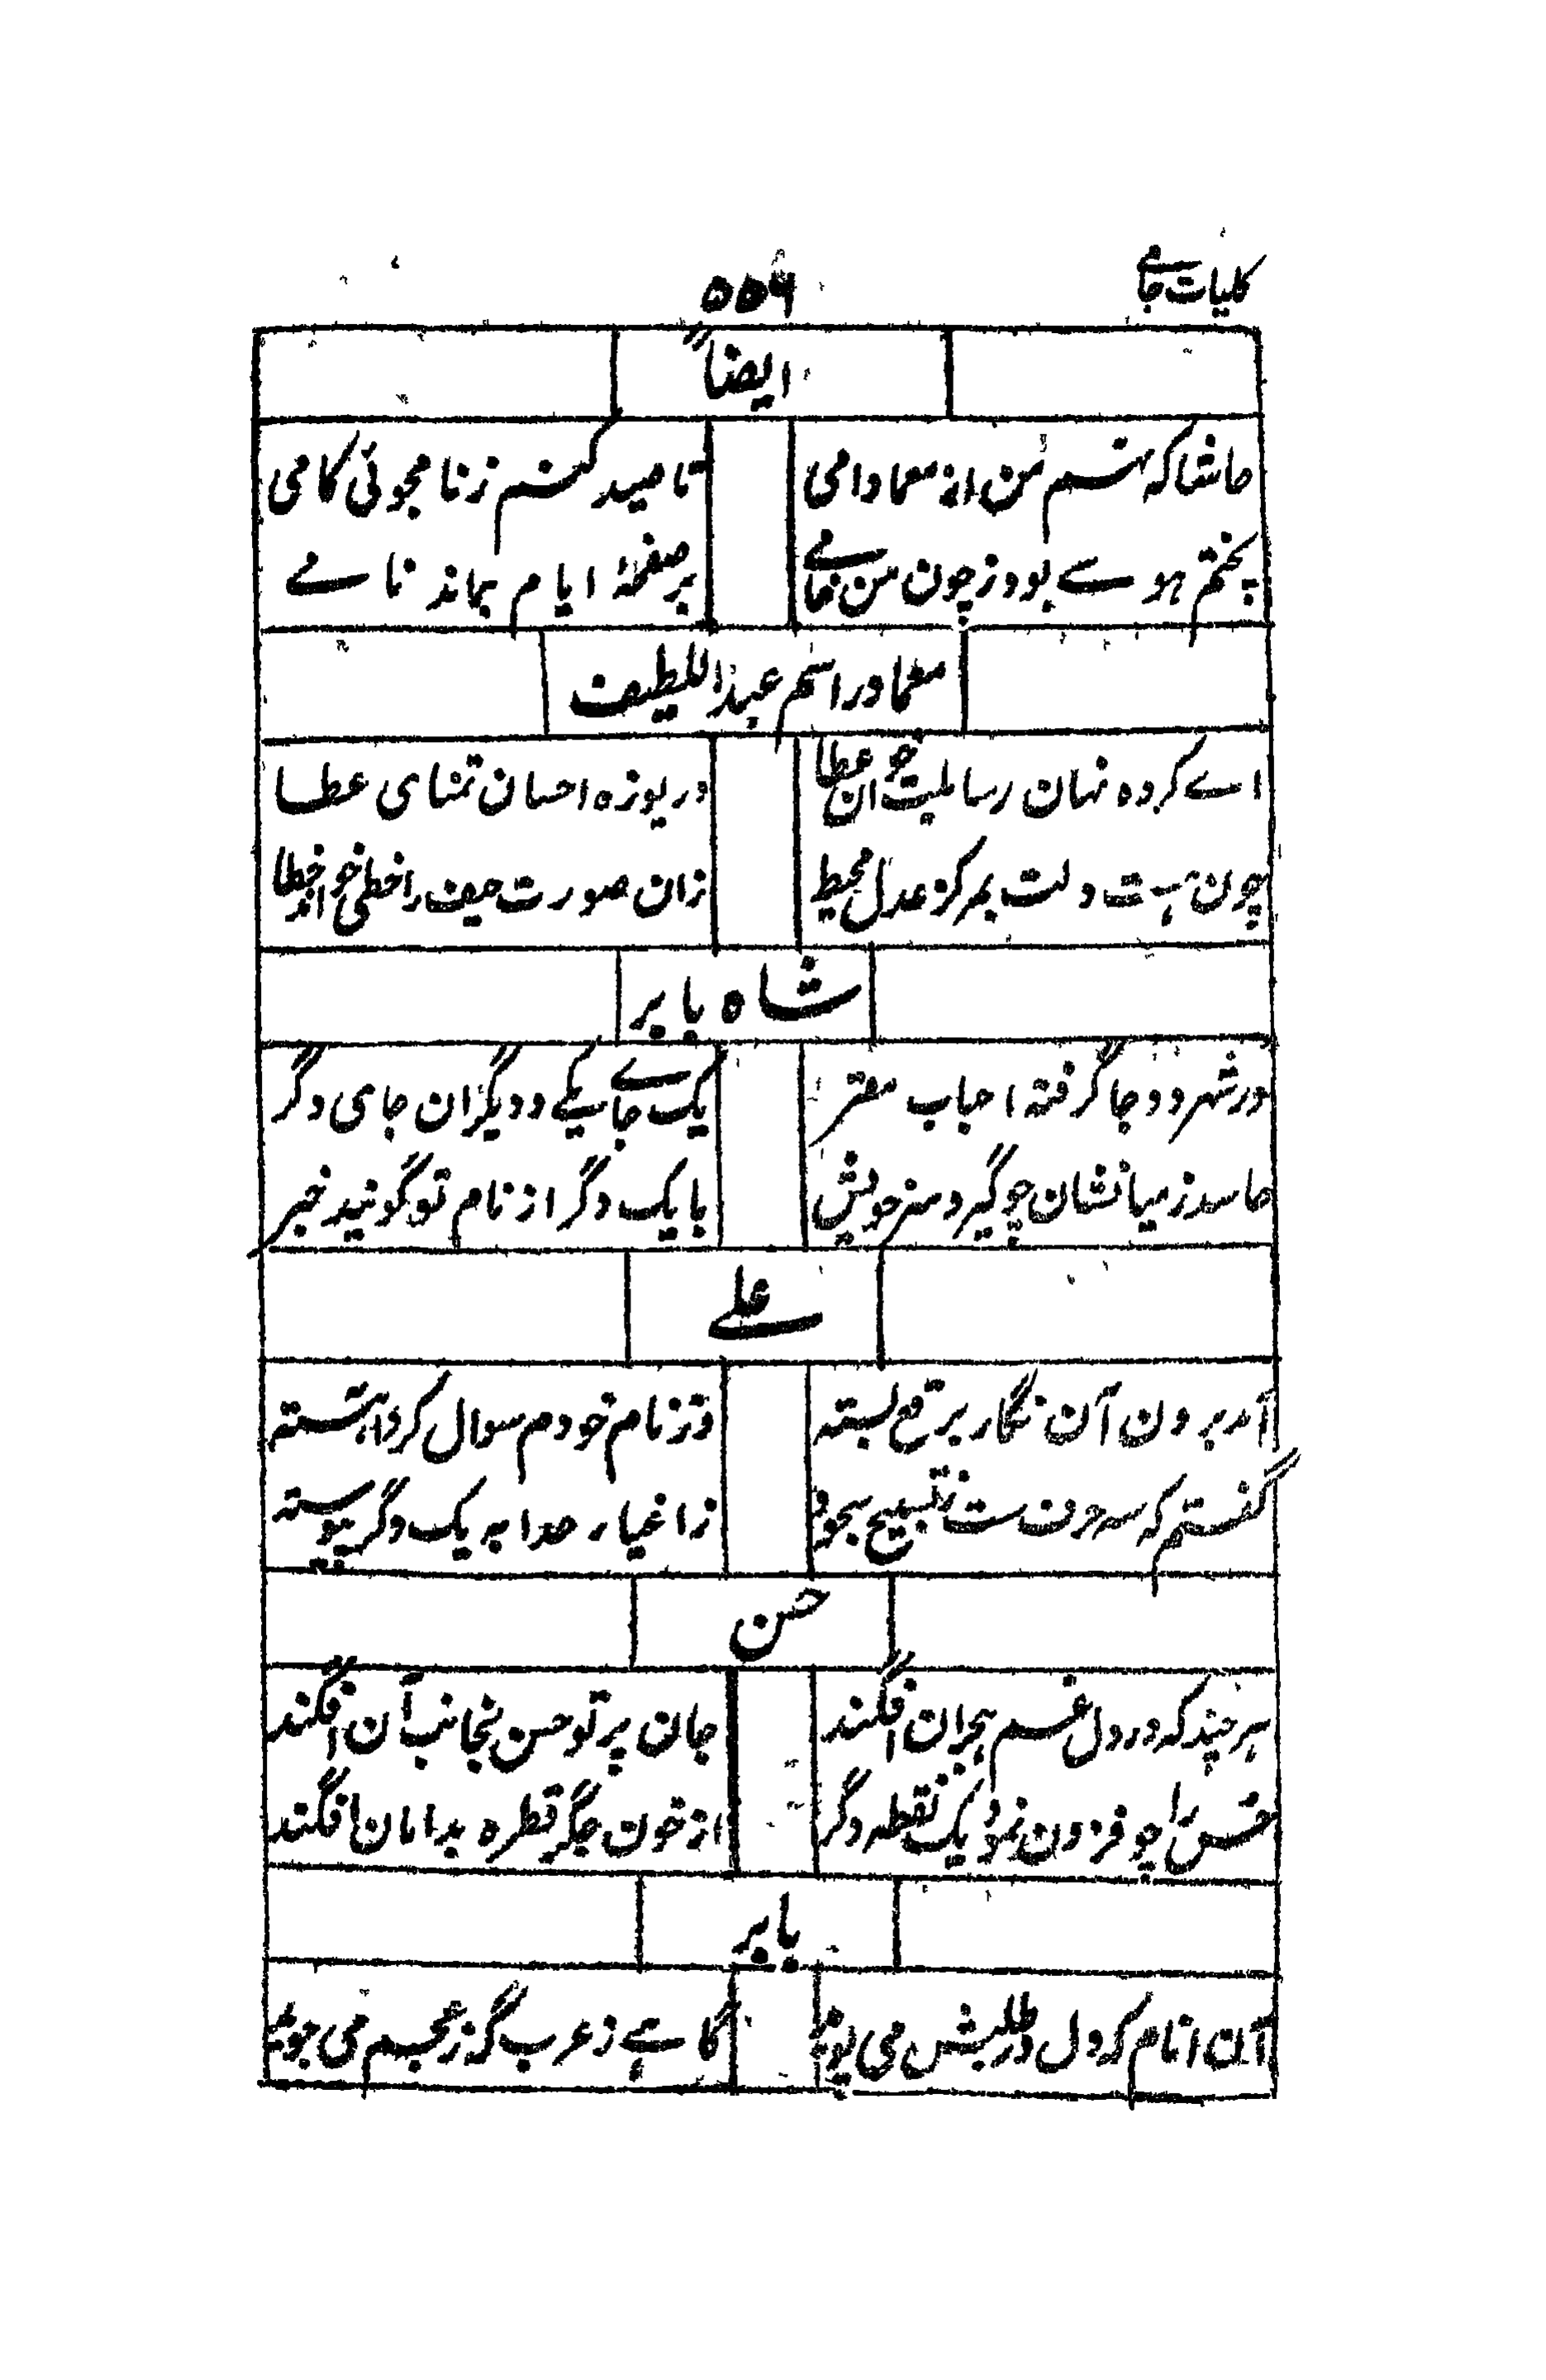 کلیات جامے
۵۵۶
ایضاً
حاشا که نهم من از معما دامی
تا صید کنم ز نامجوئی کامی
پختم هوسے بود ز چون من خامے
بر صفحۂ ایام بماند نامے
معما در اسم عبد اللطیف
اے کرده نهان رسایلت خوان عطا
دریوزه احسان تمنای عطا
چون هست دلت بمرکز عدل محیط
زان صورت حیف را خطی خواند خطا
شاه بابر
در شهر دو جا گرفته احباب مقر
یک جاے یکے و دیگران جای دگر
حاسد ز میانشان چو گیرد سر خویش
با یک دگر از نام تو گویند خبر
علے
آمد برون آن نگار برقع بسته
وز نام خودم سوال کرد آهسته
گفتم که سه حرف ست تسبیح سجود
ز اغیار جدا به یک دگر پیوسته
حسن
هر چند که در دل غم هجران افگند
جان پرتو حسن بجانب آن افگند
حسن را چو فزون نمود یک نقطه دگر
از خون جگر قطره بدامان افگند
بابر
آن نام که دل در طلبش می پوید
گاهے ز عرب گه ز عجم می جوید